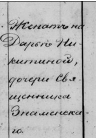 Женатъ на
Дарьѣ Ни-
китиной,
дочери Свя-
щенника
Знаменска-
го.